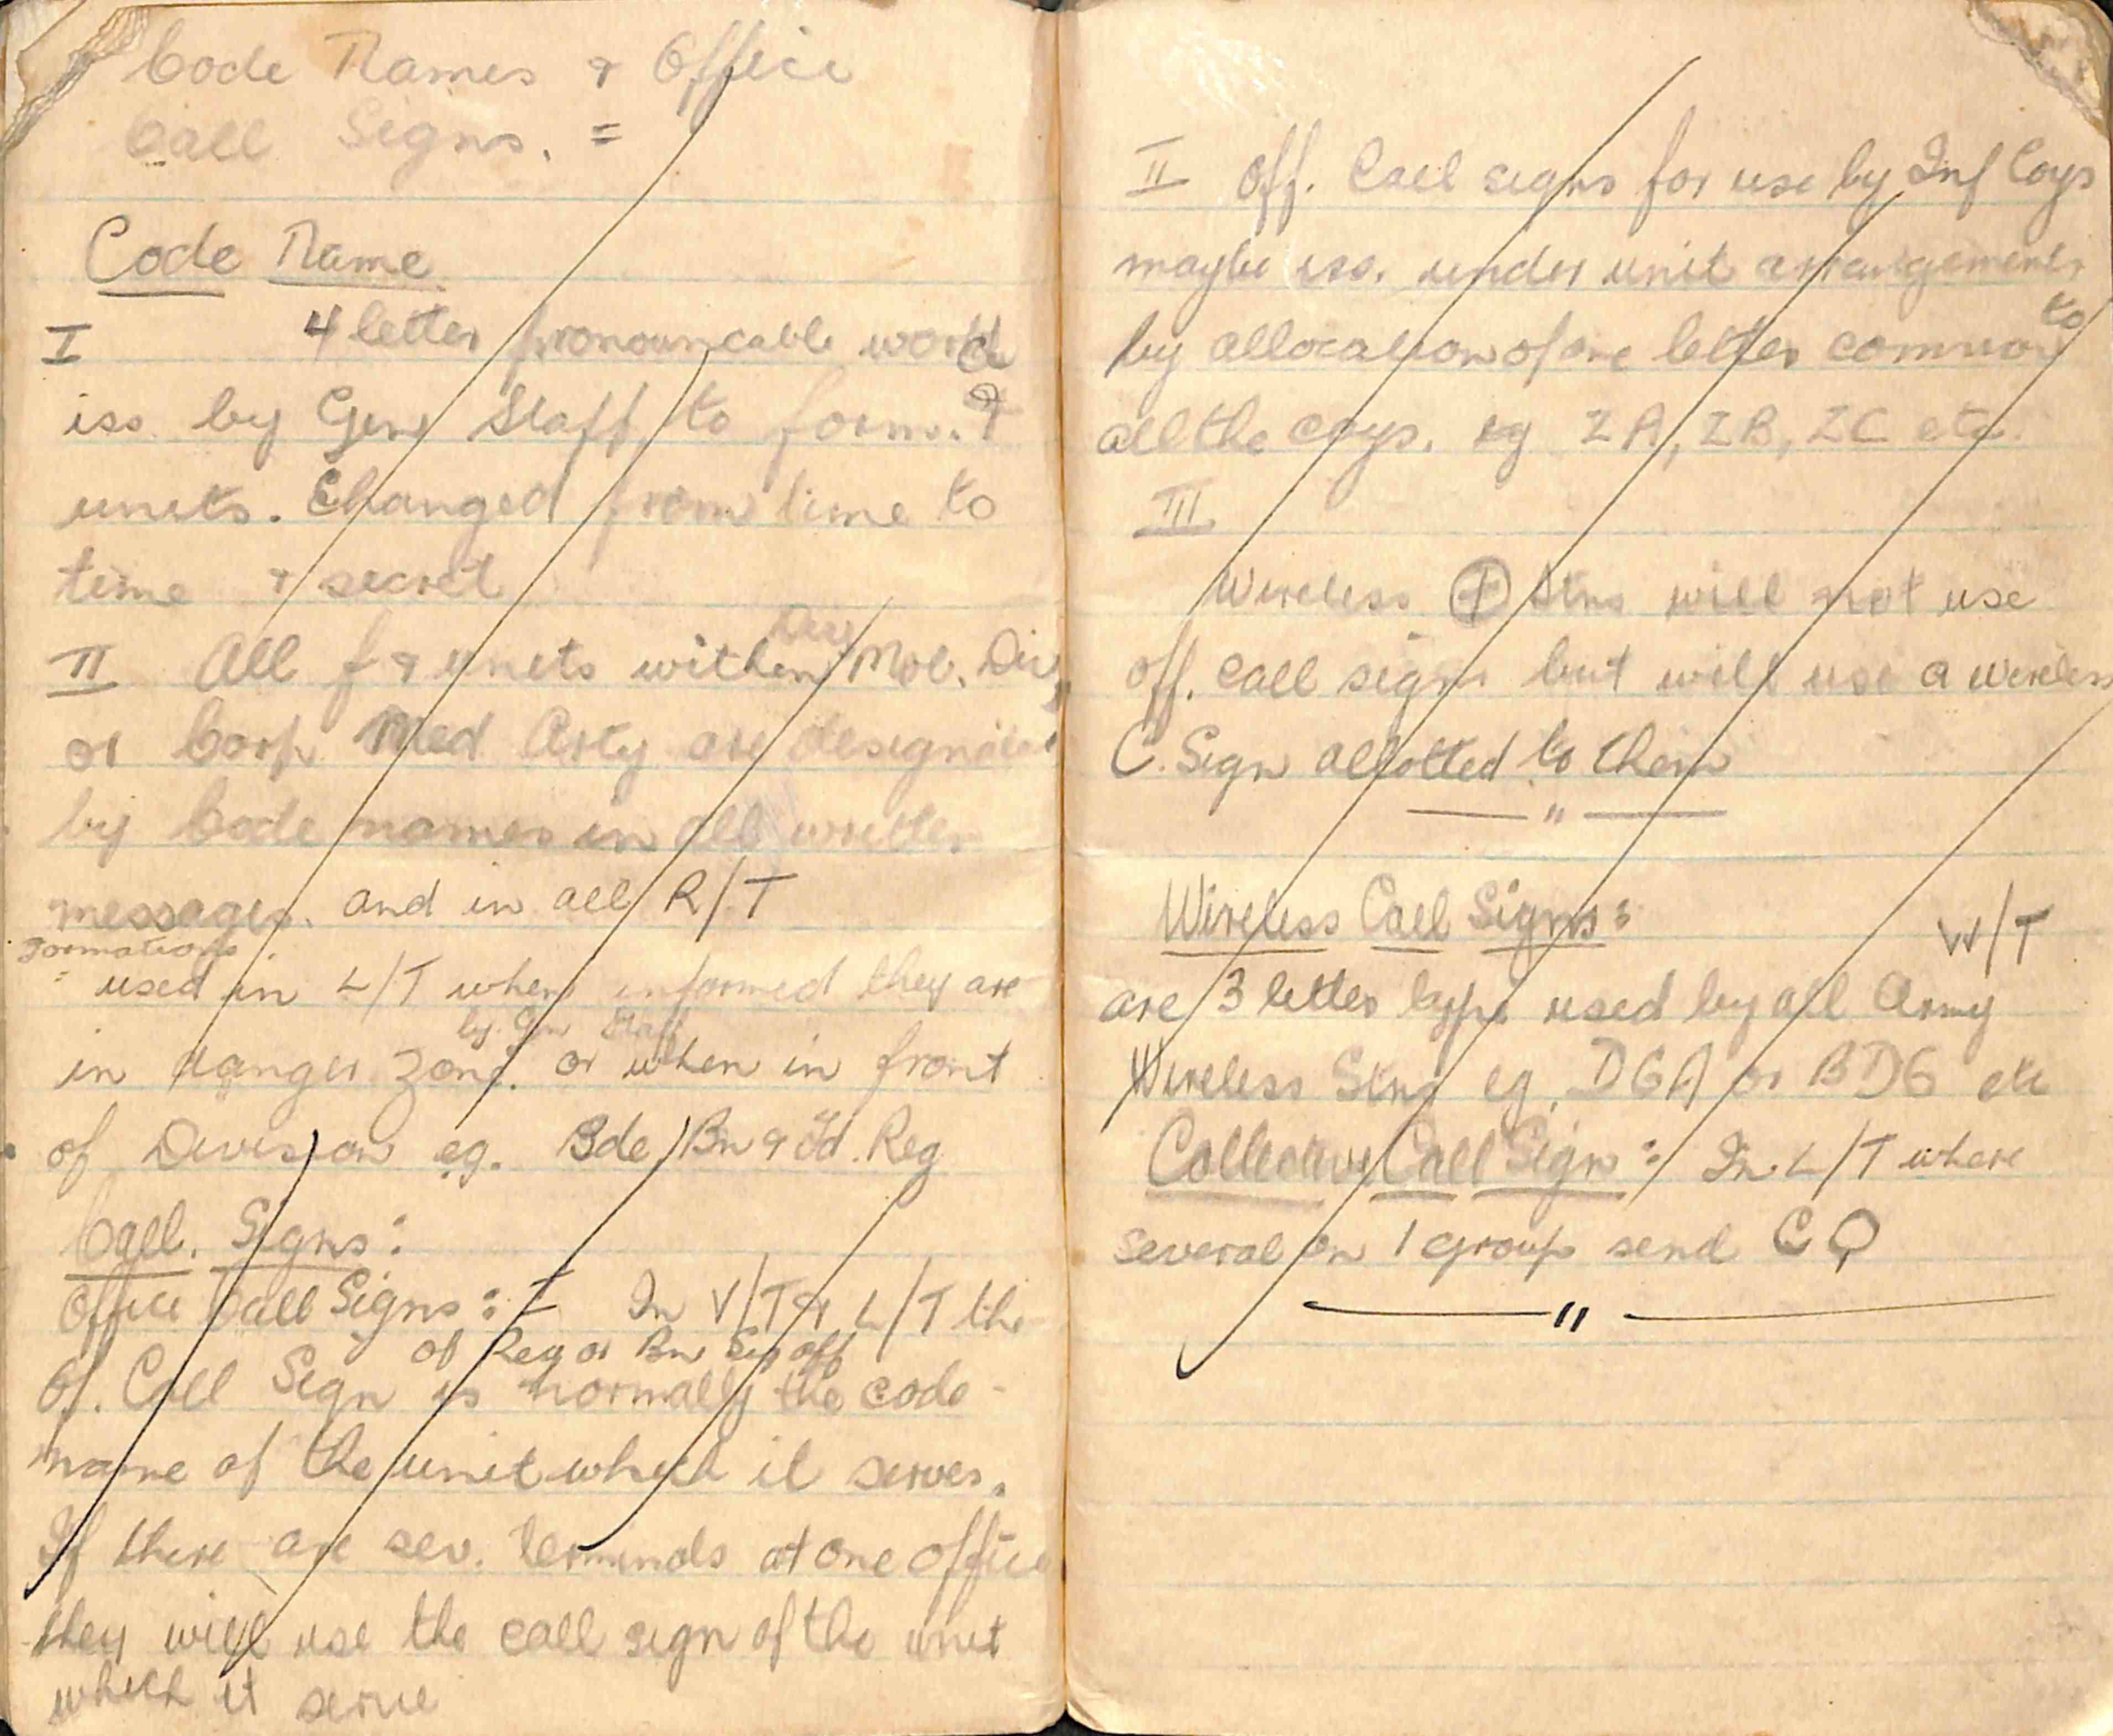 Code Names & Office
Call Signs. =
Code Name
I 4 letter pronouncable words
iss by Gen Staff to form. &
units. Changed from time to
time & secret
II All f & units within Div Mob. Div,
or Corp Med Arty are designated
by Code names in all written
messages. and in all R/T
Formations
used in L/T when informed they are
by Gen Staff
in danger zone. or when in front
of Division eg. Bde, Bn & Fd. Reg
Call. Signs:
Office Call Signs: I In V/T & L/T the
of Reg or Bn Sig off
Of. Call Sign is normally the code
name of the unit which it serves.
If there are sev. terminals at one office
they will use the call sign of the unit
which it serve
II Off. Call signs for use by Inf Coys
maybe iss. under unit arrangements
by allocation of one letter common to
all the coys. eg ZA, ZB, ZC etc.
III
Wireless Stns will not use
off. call signs but will use a wireless
C. Sign allotted to them
"
Wireless Call Signs:
W/T
are 3 letter type used by all Army
Wireless Stns eg. DGA or BDG etc
Collective Call Sign: In L/T where
several on 1 group send CQ
"